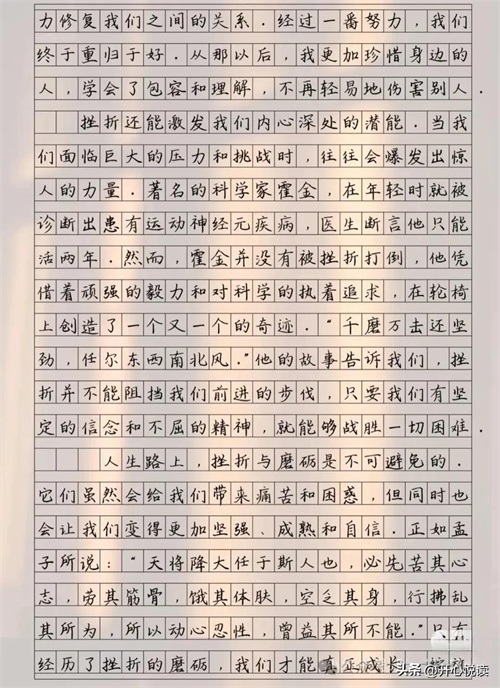 力修复我们之间的关系.经过一番努力,我们
终于重归于好.从那以后,我更加珍惜身边的
人,学会了包容和理解,不再轻易地伤害别人.
挫折还能激发我们内心深处的潜能.当我
们面临巨大的压力和挑战时,往往会爆发出惊
人的力量.著名的科学家霍金,在年轻时就被
诊断出患有运动神经元疾病,医生断言他只能
活两年.然而,霍金并没有被挫折打倒,他凭
借着顽强的毅力和对科学的执着追求,在轮椅
上创造了一个又一个的奇迹."千磨万击还坚
劲,任尔东西南北风."他的故事告诉我们,挫
折并不能阻挡我们前进的步伐,只要我们有坚
定的信念和不屈的精神,就能够战胜一切困难.
人生路上,挫折与磨砺是不可避免的.
它们虽然会给我们带来痛苦和困惑,但同时也
会让我们变得更加坚强、成熟和自信.正如孟
子所说:"天将降大任于斯人也,必先苦其心
志,劳其筋骨,饿其体肤,空乏其身,行拂乱
其所为,所以动心忍性,曾益其所不能."只有
经历了挫折的磨砺,我们才能真正成长
头条 @开心悦读